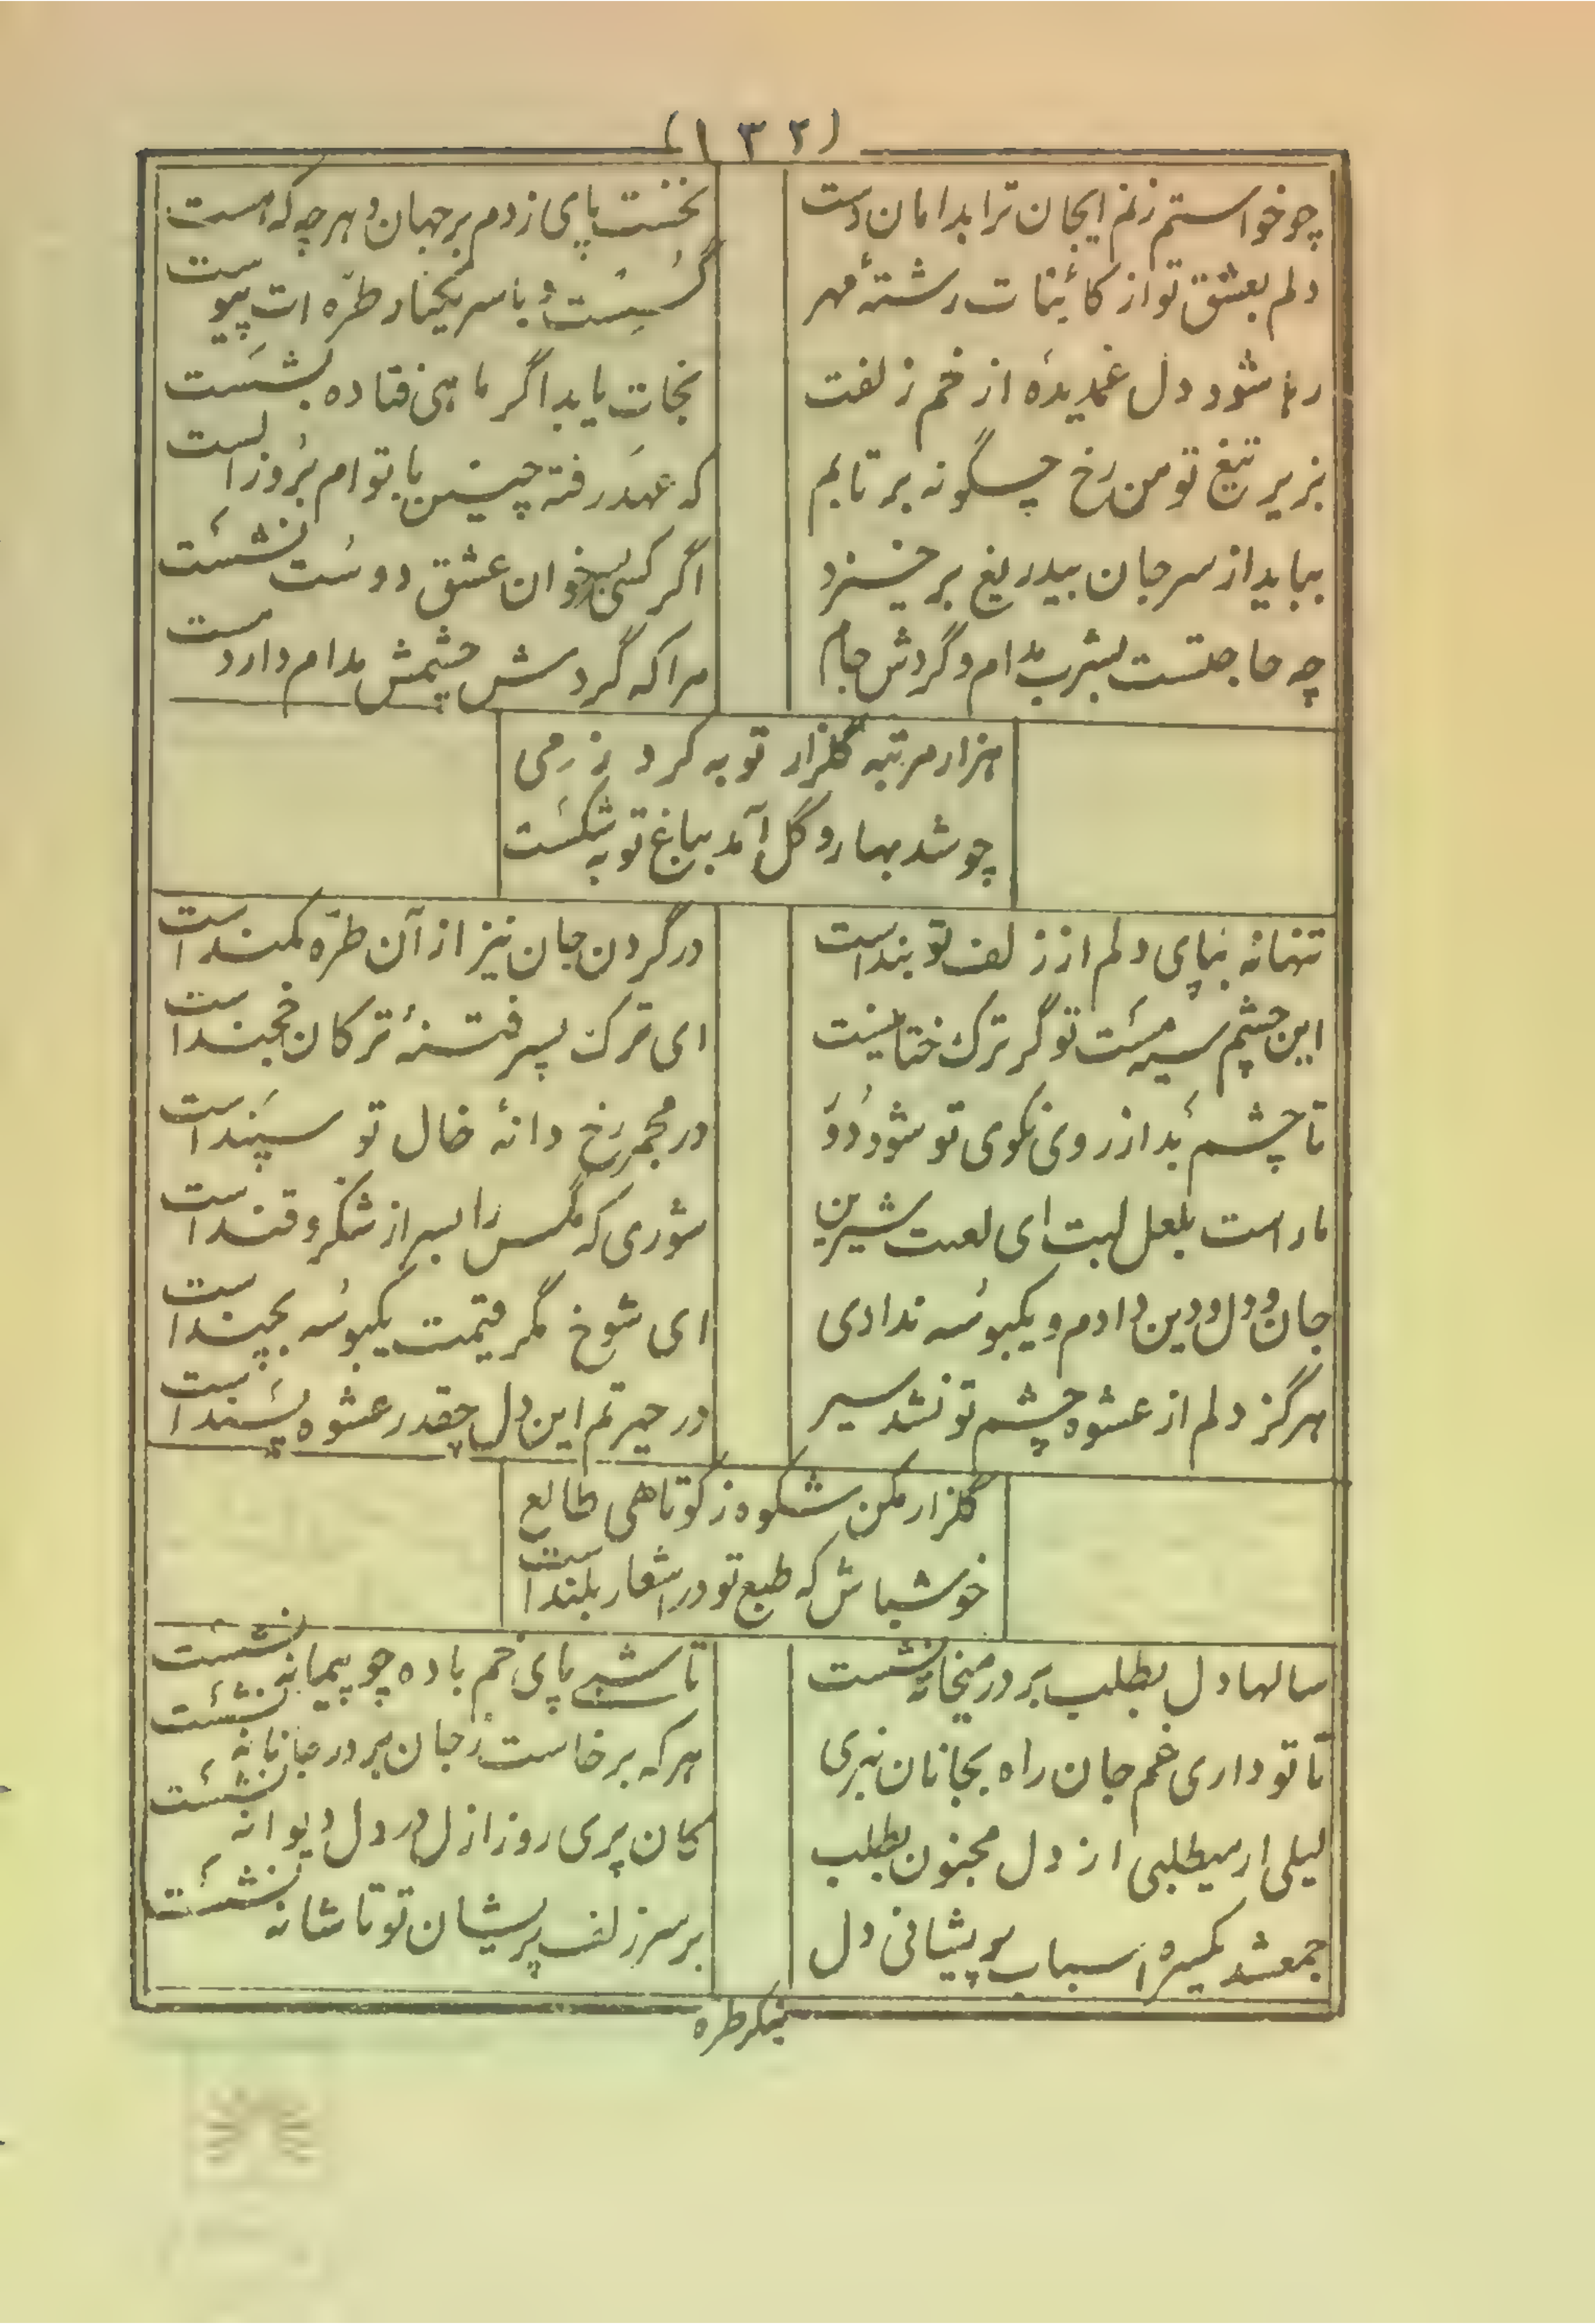 (۱۳۲)
چو خواستم زنم ایجان ترا بدامان دست
نخست پای زدم بر جهان و هر چه که هست
دلم بعشق تو از کائنات رشتهٔ مهر
گسست و با سر یکتار طرّه ات پیوست
رها شود دل غمدیده از خم زلفت
نجات یابد اگر ماهی فتاده بشست
بزیر تیغ تو من رخ چسگونه بر تابم
که عهد رفته چنین با توام بروز الست
بباید از سر جان بیدریغ بر خیزد
اگر کسی بسر خوان عشق دوست نشست
چه حاجتست بشرب مدام و گردش جام
مرا که گردش چشمش مدام دارد مست
هزار مرتبه گلزار توبه کرد ز می
چو شد بهار و گل آمد بباغ توبه شکست
تنها نه بپای دلم از زلف تو بند است
در گردن جان نیز از آن طرّه کمند است
این چشم سیه مست تو گر ترک ختا نیست
ای ترک پسر فتنهٔ ترکان خجند است
تا چشم بد از روی نکوی تو شود دور
در مجمر رخ دانهٔ خال تو سپند است
ما راست بلعل لبت ای لعبت شیرین
شوری که مگس را بسر از شکر و قند است
جان و دل و دین دادم و یکبوسه ندادی
ای شوخ مگر قیمت یکبوسه بچند است
هرگز دلم از عشوه چشم تو نشد سیر
در حیرتم این دل چقدر عشوه پسند است
گلزار مکن شکوه ز کوتاهی طالع
خوشباش که طبع تو در اشعار بلند است
سالها دل بطلب بر در میخانه نشست
تا شبی پای خم باده چو پیمانه نشست
تا تو داری غم جان راه بجانان نبری
هر که برخاست ز جان بر در جانانه نشست
لیلی ار میطلبی از دل مجنون بطلب
کان پری روز ازل در دل دیوانه نشست
جمعشد یکسره اسباب پریشانی دل
بر سر زلف پریشان تو تا شانه نشست